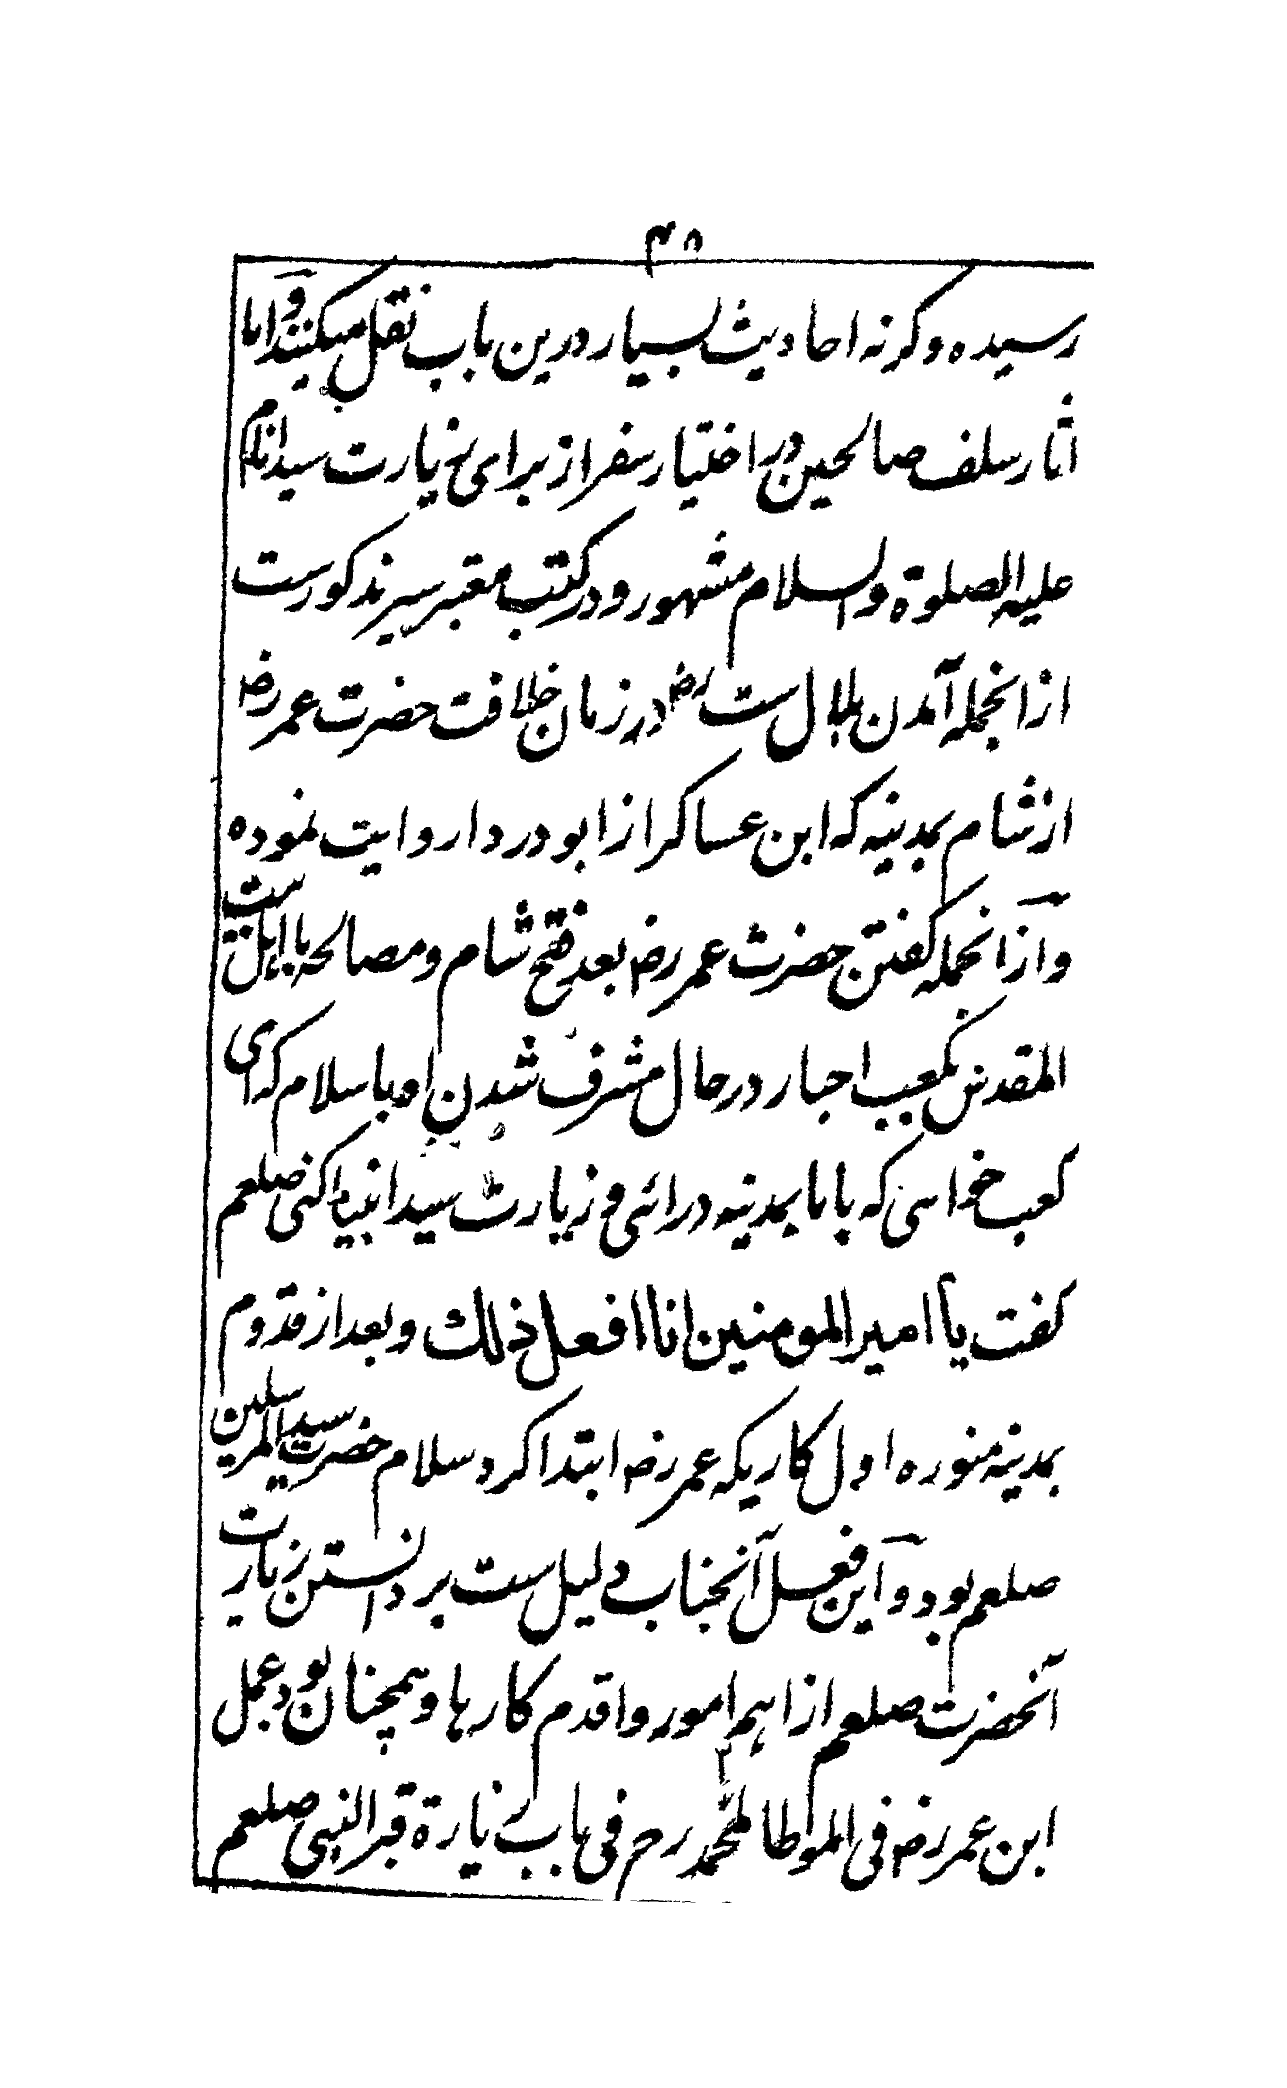 ۴۸
رسیده وگرنه احادیث بسیار درین باب نقل میکنند و اما
اثار سلف صالحین در اختیار سفر از برای زیارت سید انام
علیه الصلوة والسلام مشهور و در کتب معتبر سیر مذکورست
از انجمله آمدن بلال ست رض در زمان خلافت حضرت عمر رض
از شام بمدینه که ابن عساکر از ابو دردا روایت نموده ست
و از انجمله گفتن حضرت عمر رض بعد فتح شام و مصالحه با اهل بیت
المقدس بکعب احبار در حال مشرف شدن او باسلام که ای
کعب خواهی که باما بمدینه درائی و زیارت سید انبیا کنی صلعم
گفت یا امیر المومنین انا افعل ذلك و بعد از قدوم
بمدینه منوره اول کاریکه عمر رض ابتدا کرد سلام حضرت سید المرسلین
صلعم بود و این فعل آنجناب دلیل ست بر دانستن زیارت
آنحضرت صلعم از اهم امور و اقدم کارها و همچنان بود عمل
ابن عمر رض فی الموطا لمحمد رح فی باب زیارة قبر النبی صلعم